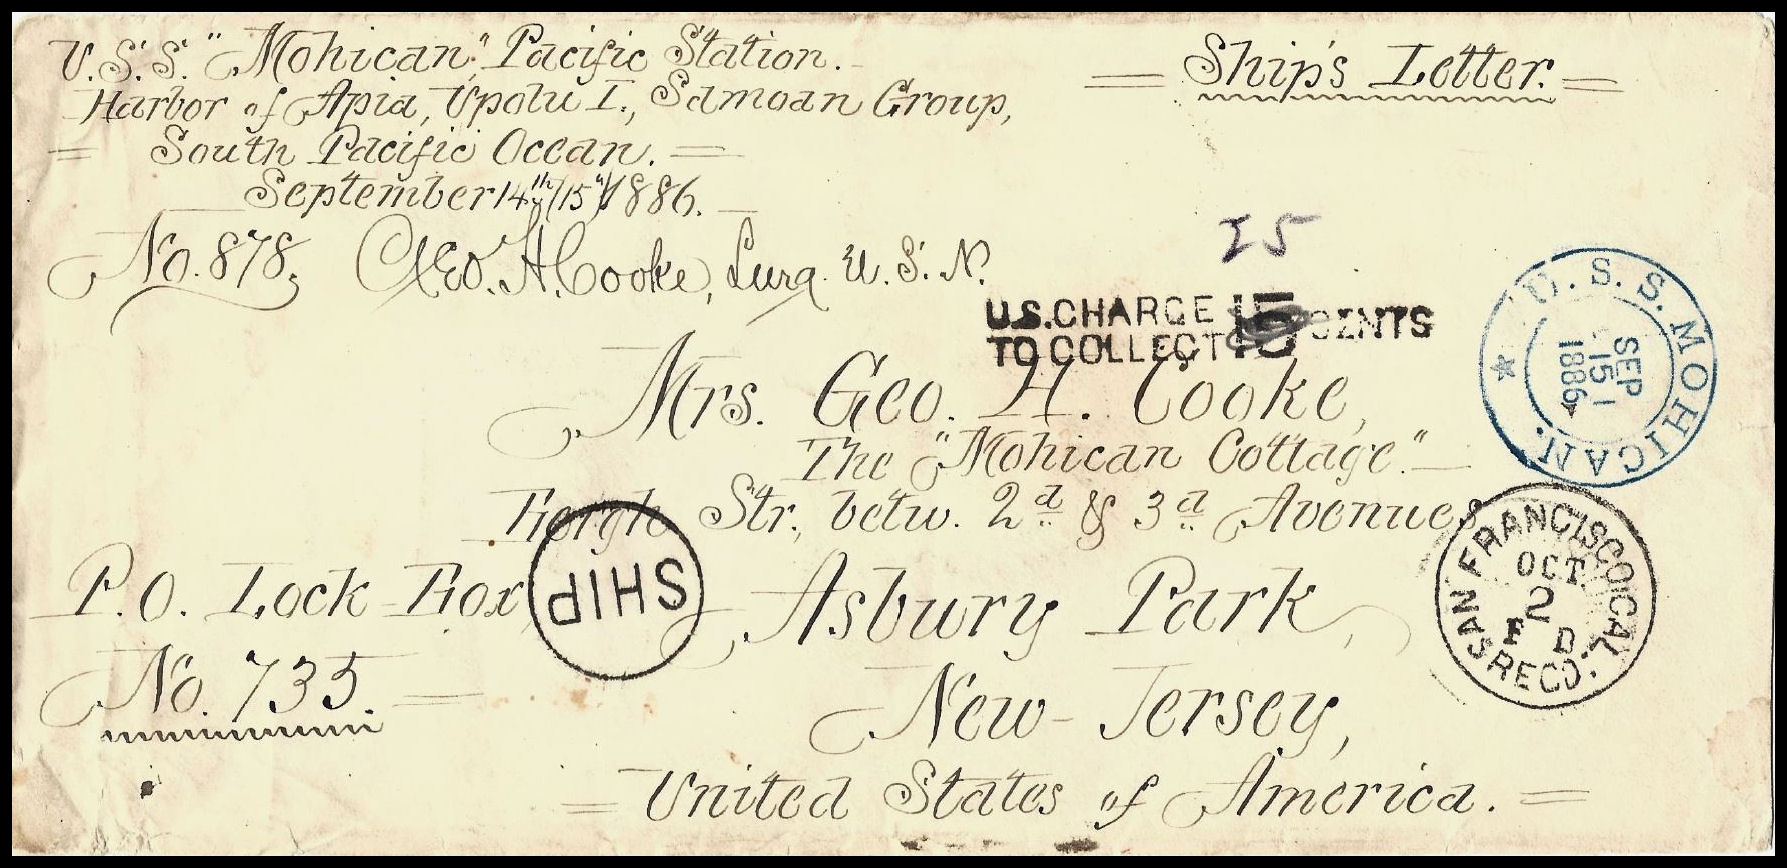 U.S.S. "Mohican," Pacific Station.
Ship's Letter.
Harbor of Apia, Upolu I., Samoan Group,
South Pacific Ocean.
September 14th/(15")/1886.
No. 878. Geo. H. Cooke, Surg. U.S.N.
15
U.S. CHARGE 15 CENTS
TO COLLECT
U.S.S. MOHICAN.
SEP
15
1886
Mrs. Geo. H. Cooke,
The "Mohican Cottage."
Bergh Str., betw. 2d & 3d Avenues
P.O. Lock Box
No. 735.
SHIP
Asbury Park,
New-Jersey,
United States of America.
SAN FRANCISCO, CAL.
OCT
2
D.
REC'D.